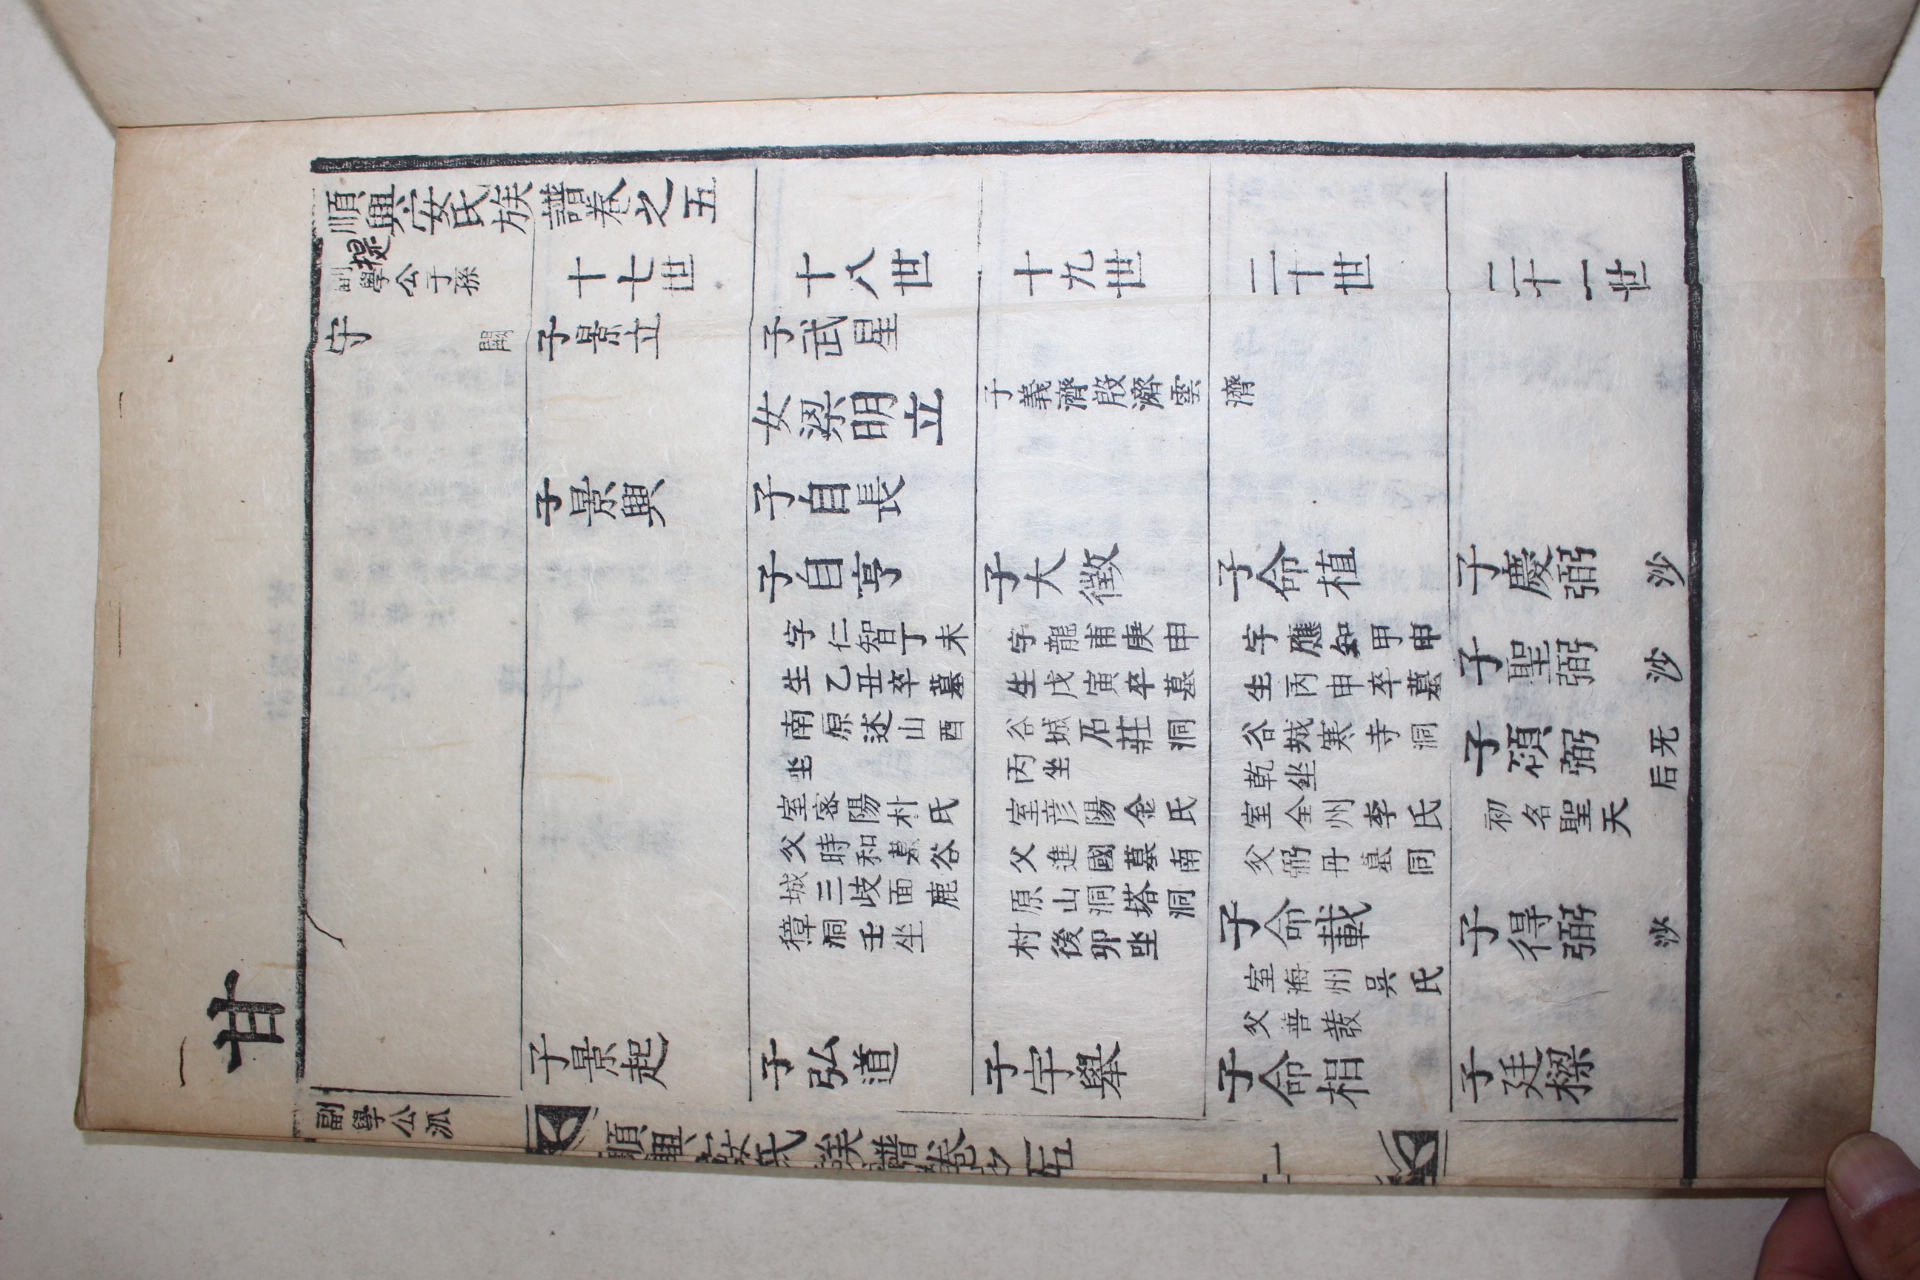 順興安氏族譜卷之五
副學公子孫
提
十七世
十八世
十九世
二十世
二十一世
守
闕
子景立
子景興
子景起
子武星
女梁明立
子自長
子自亨
字仁智丁未
生乙丑卒墓
南原述山酉
坐
室密陽朴氏
父時和墓谷
城三歧面鹿
獐洞壬坐
子弘道
子義濟殷濟雲
濟
子大徵
字龍甫庚申
生戊寅卒墓
谷城石莊洞
丙坐
室彦陽金氏
父進國墓南
原山洞塔洞
村後卯坐
子宇舉
子命植
字應知甲申
生丙申卒墓
谷城寒寺洞
乾坐
室全州李氏
父弼丹墓同
子命載
室海州吳氏
父善
子命相
子慶弼
沙
子聖弼
沙
子碩弼
初名聖天
后
子得弼
沙
子廷樑
甘
一
副學公派
順興安氏族譜卷之五
一